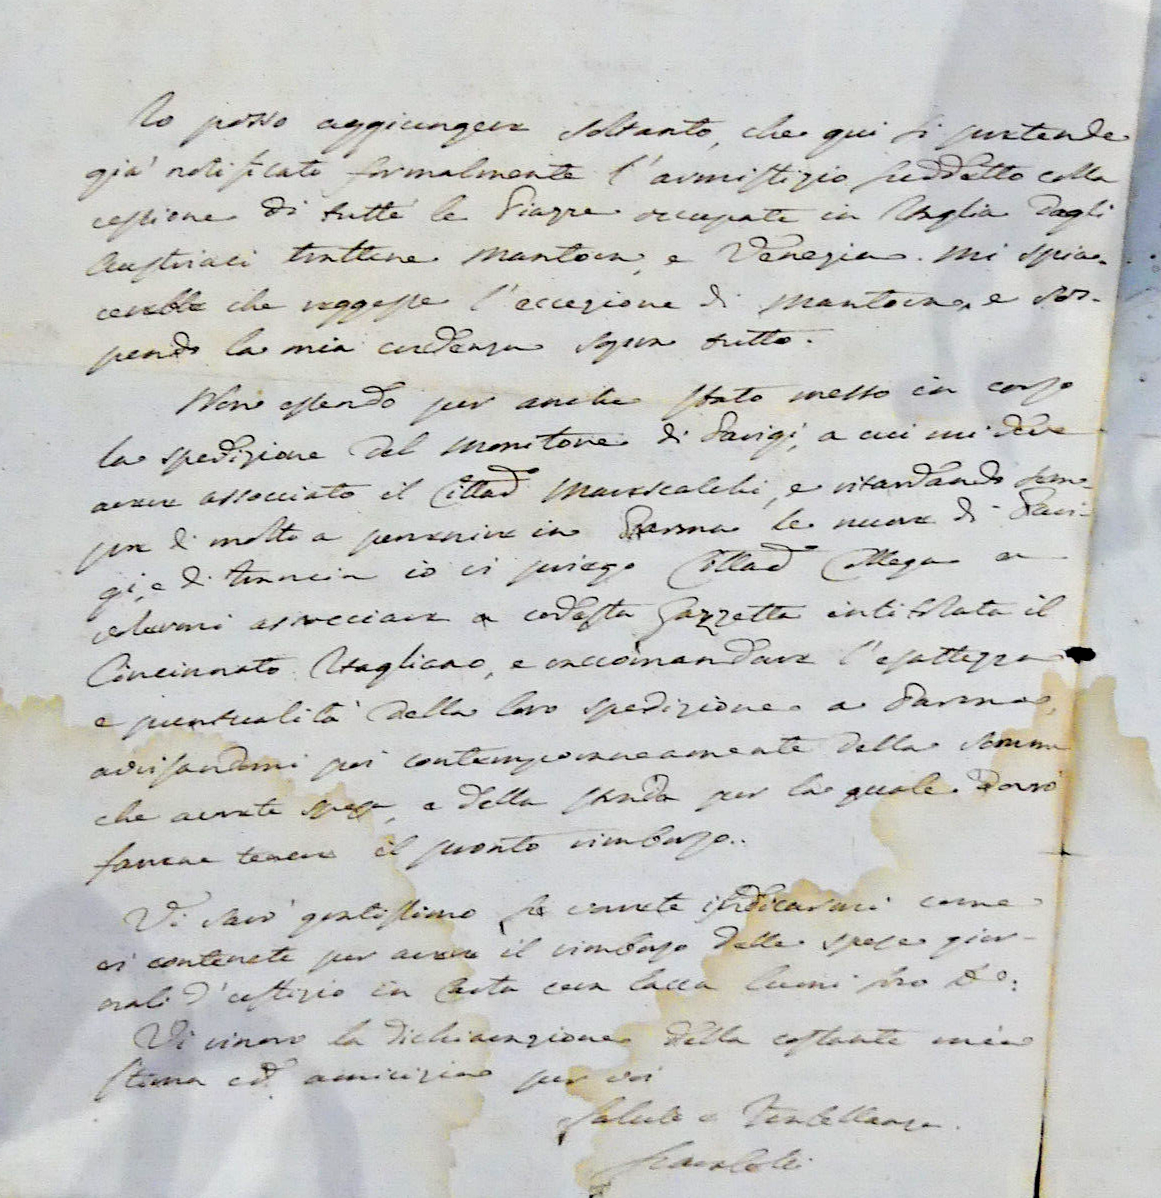 Io posso aggiungere soltanto, che qui si pretende
già notificato formalmente l'armistizio suddetto colla
cessione di tutte le Piazze occupate in Italia dagli
Austriaci trattene Mantova, e Venezia. Mi spia-
cerebbe che reggesse l'eccezione di Mantova, e sos-
pendo la mia credenza sopra tutto.
Non essendo per anche stato messo in corso
la spedizione del Monitore di Parigi, a cui mi deve
avere associato il Cittad Marescalchi, e ritardando sem-
pre di molto a pervenire in Parma le nuove di Pari-
gi, e di Francia io vi priego Cittad Collega a
volermi associare a codesta Gazzetta intitolata il
Cincinnato Itagliano, e raccomandare l'esattezza
e puntualità della loro spedizione a Parma,
avvisandomi poi contemporaneamente della somma
che avrete spesa, e della strada per la quale dovrò
farvene tenere il pronto rimborso.
Vi sarò gratissimo se vorrete indicarmi come
vi contenete per avere il rimborso delle spese gior-
nali d'offizio in Carta cera lacca lumi
Vi rinovo la dichiarazione della costante mia
stima ed amicizia per voi
Salute e Fratellanza.